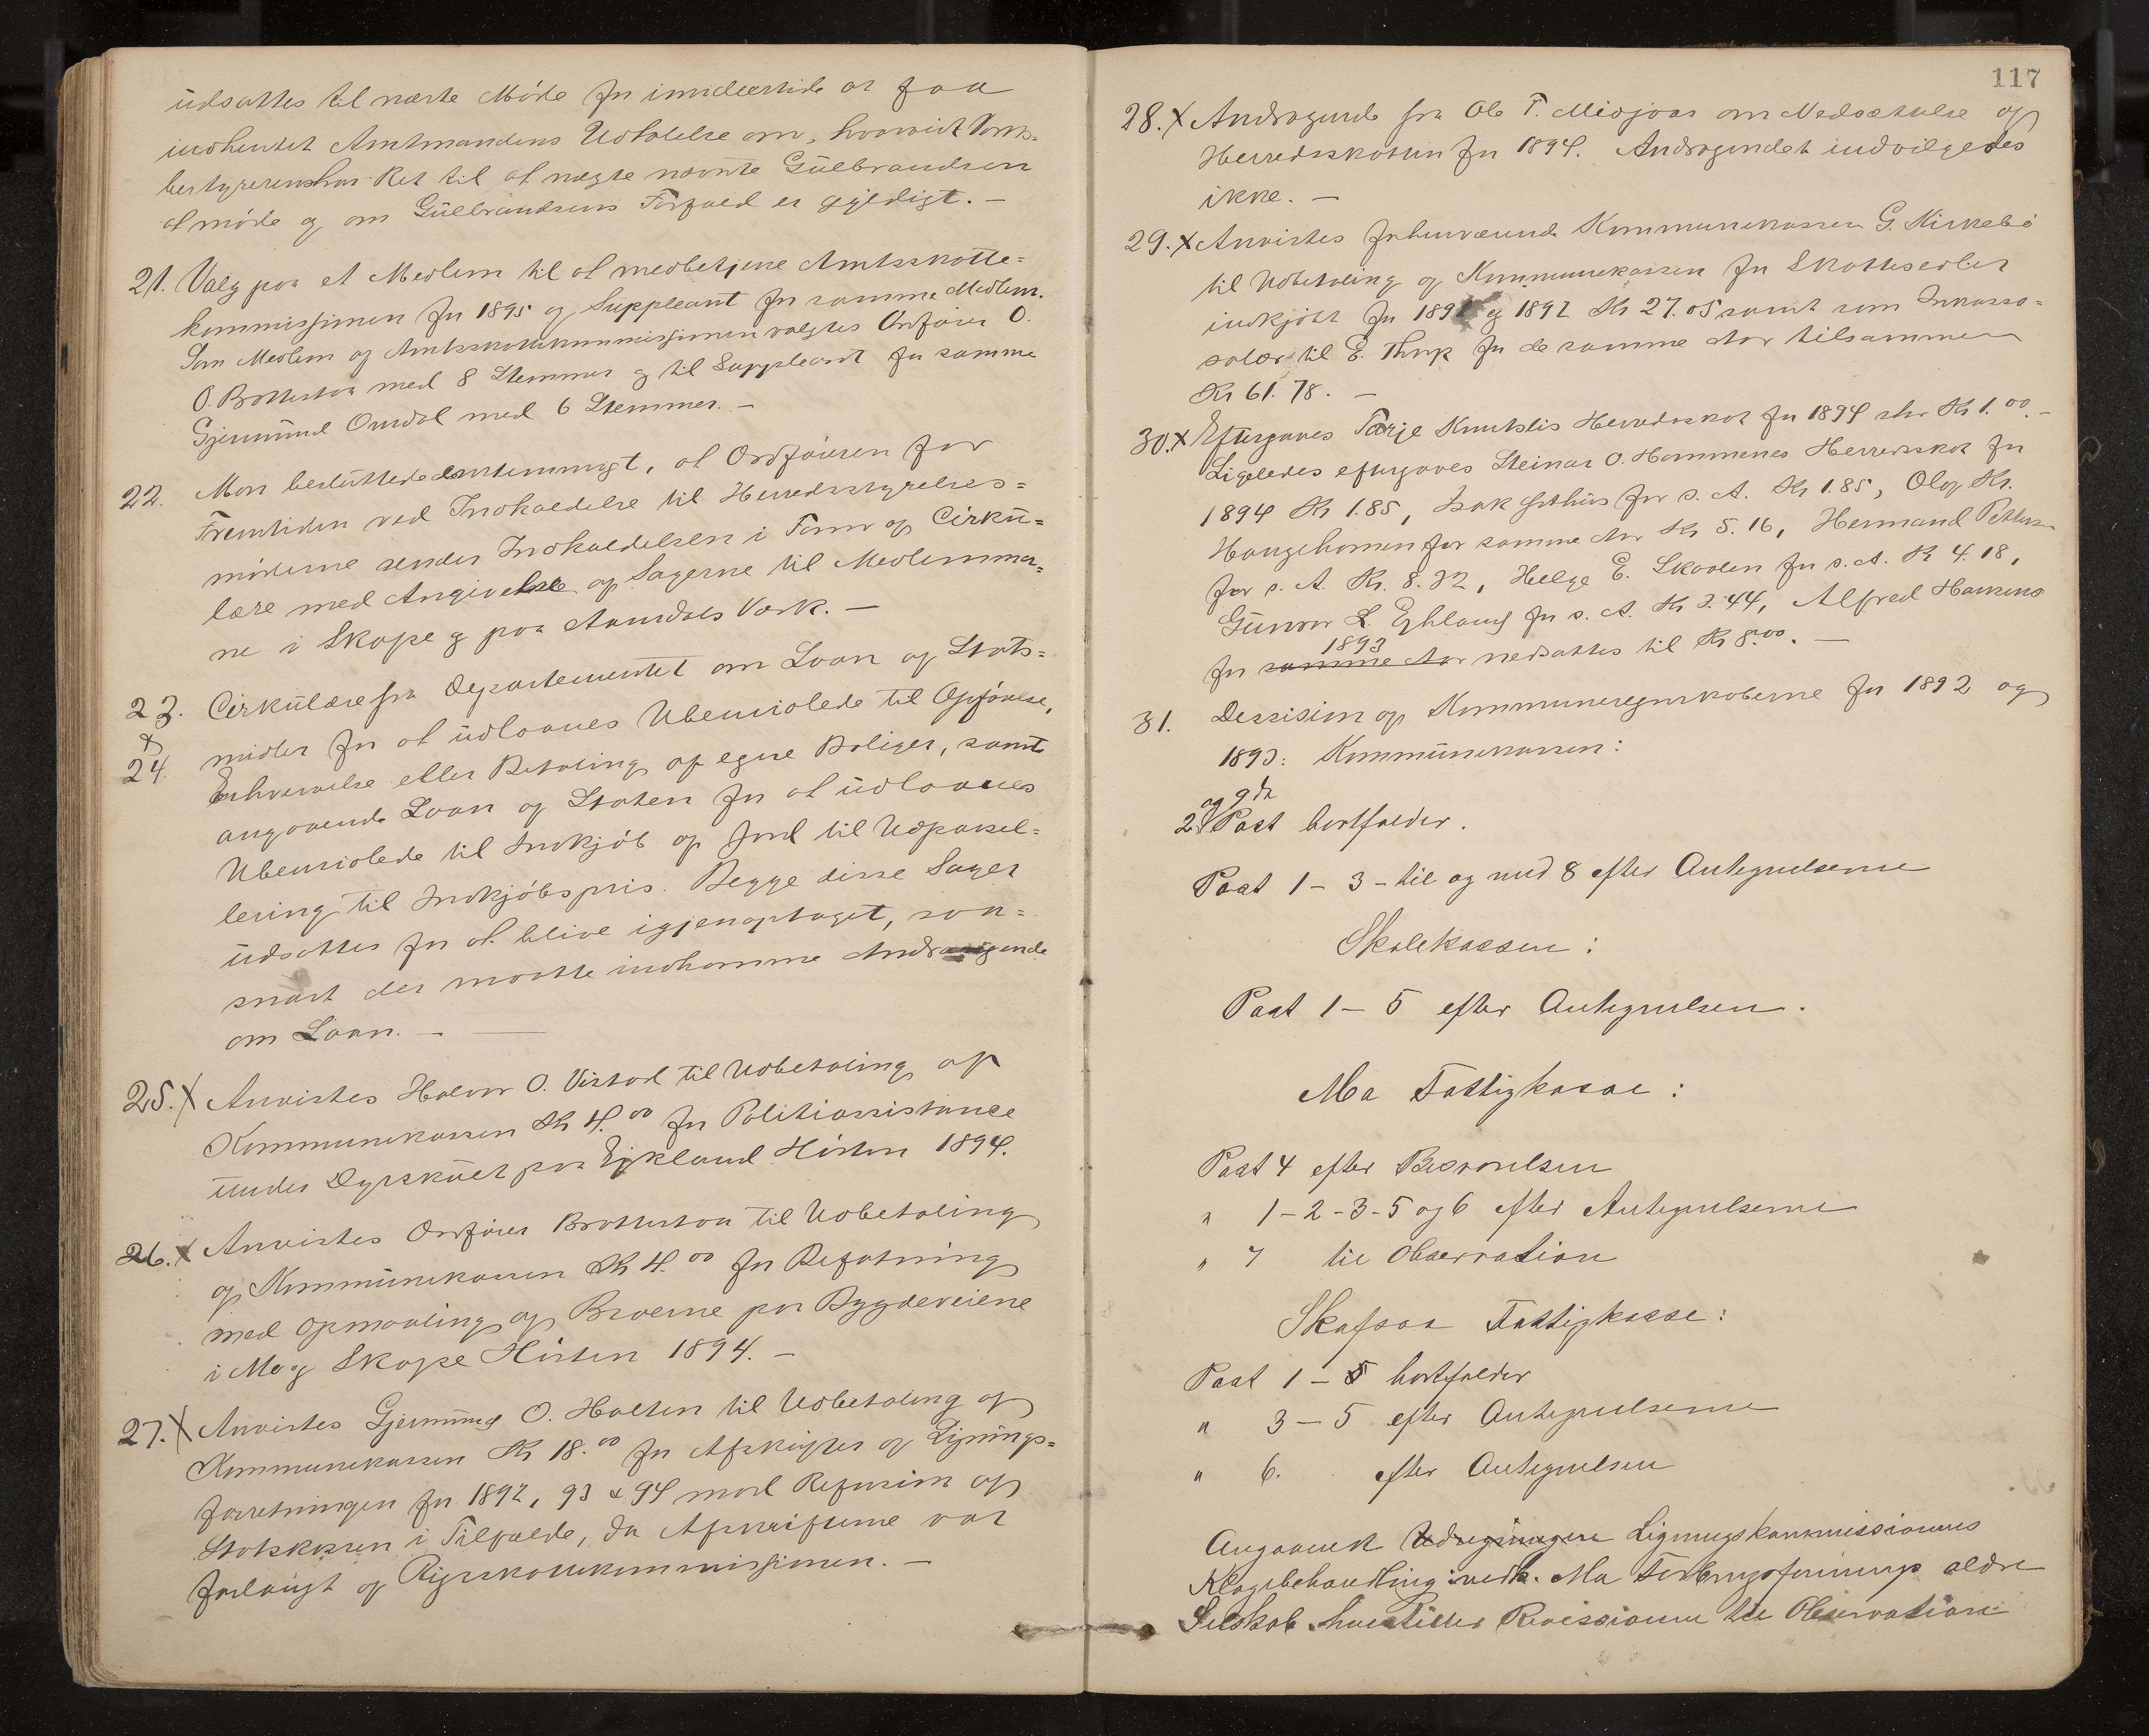 udsattes til næste Møde for imidlertid at faa
indhentet Amtmandens Udtalelse om, hvorvidt Værks=
bestyreren har Ret til at nægte nævnte Gulbrandsen
at møde og om Gulbrandsens Forfald er gyldigt. —
21. Valg paa et Medlem til at medbetjene Amtsskatte=
kommissjonen for 1895 og Suppleant for samme Medlem.
Som Medlem af Amtsskattekommissjonen valgtes Ordfører O.
O. Brotterton med 8 Stemmer og til Suppleant for samme
Gjermund Omdal med 6 Stemmer. —
22. Man besluttede enstemmigt, at Ordføreren for
Fremtiden ved Indkaldelse til Herredsstyrelses=
møderne sender Indkaldelsen i Form af Cirku=
lære med Angivelse af Sagerne til Medlemmer=
ne i Skafse og paa Aamdals Værk. —
23. Cirkulære fra Departementet om Laan af Stats=
24. midler for at udlaanes Ubemidlede til Opførelse,
Erhvervelse eller Betaling af egne Boliger, samt
angaaende Laan af Staten for at udlaanes
Ubemidlede til Indkjøb af Jord til Udparsel=
lering til Indkjøbspris. Begge disse Sager
udsattes for at blive igjenoptaget, saa=
snart der maatte indkomme Andragende
om Laan. —
25. X Anvistes Halvor O. Vistad til Udbetaling af
Kommunekassen Kr 4.00 for Politiassistance
under Dyrskuet paa Eykland Høsten 1894.
26. X Anvistes Ordfører Brotterton til Udbetaling
af Kommunekassen Kr 4.00 for Befatning
med Opmaaling af Broerne paa Bygdeveiene
i Mo og Skafse Høsten 1894. —
27. X Anvistes Gjermund O. Holten til Udbetaling af
Kommunekassen Kr 18.00 for Afskrifter af Lignings=
forretningen for 1892, 93 & 94 mod Refusion af
Statskassen i Tilfælde, da Afskrifterne var
forlangt af Rigsskattekommissjonen. —
117
28. X Andragende fra Ole T. Midjaas om Nedsættelse af
Herredsskatten for 1894. Andragendet indvilgedes
ikke. —
29. X Anvistes forhenværende Kommunekasserer G. Kirkebø
til Udbetaling af Kommunekassen for Skattesedler
indkjøbt for 1891 og 1892 Kr 27.05 samt som Inkasso=
salær til E. Thrap for de samme Aar tilsammen
Kr 61.78. —
30. X Eftergaves Tarje Knutslis Herredsskat for 1894 stor Kr 1.00 —
Ligeledes eftergaves Steinar O. Hammenes Herredsskat for
1894 Kr 1.85, Isak for s. A. Kr 1.85, Olaf Kr.
Haugehomen for samme Aar Kr 5.16, Hermand Petters
for s. A. Kr. 8.32, Helge E. Skaalen for s. A. Kr 4.18,
Gunvor L. for s. A. Kr 3.44, Alfred Hansens
1893
for samme Aar nedsattes til Kr 8.00. —
31. Dessision af Kommuneregnskaberne for 1892 og
1893: Kommunekassen:
og 9de
2. Post bortfalder.
Post 1 – 3 – til og med 8 efter Antegnelserne
Skolekassen:
Post 1 – 5 efter Antegnelsen.
Mo Fattigkasse:
Post 4 efter Besvarelsen
" 1 – 2 – 3 – 5 og 6 efter Antegnelserne
" 7 til Observation
Skafsaa Fattigkasse:
Post 1 – 5 bortfalder
" 3 – 5 efter Antegnelserne
" 6. efter Antegnelsen
Angaaende Ligningskommissionens
Klagebehandling vedk. Mo Forbrugsforenings ældre
Selskab henstilles Revissionen til Observation